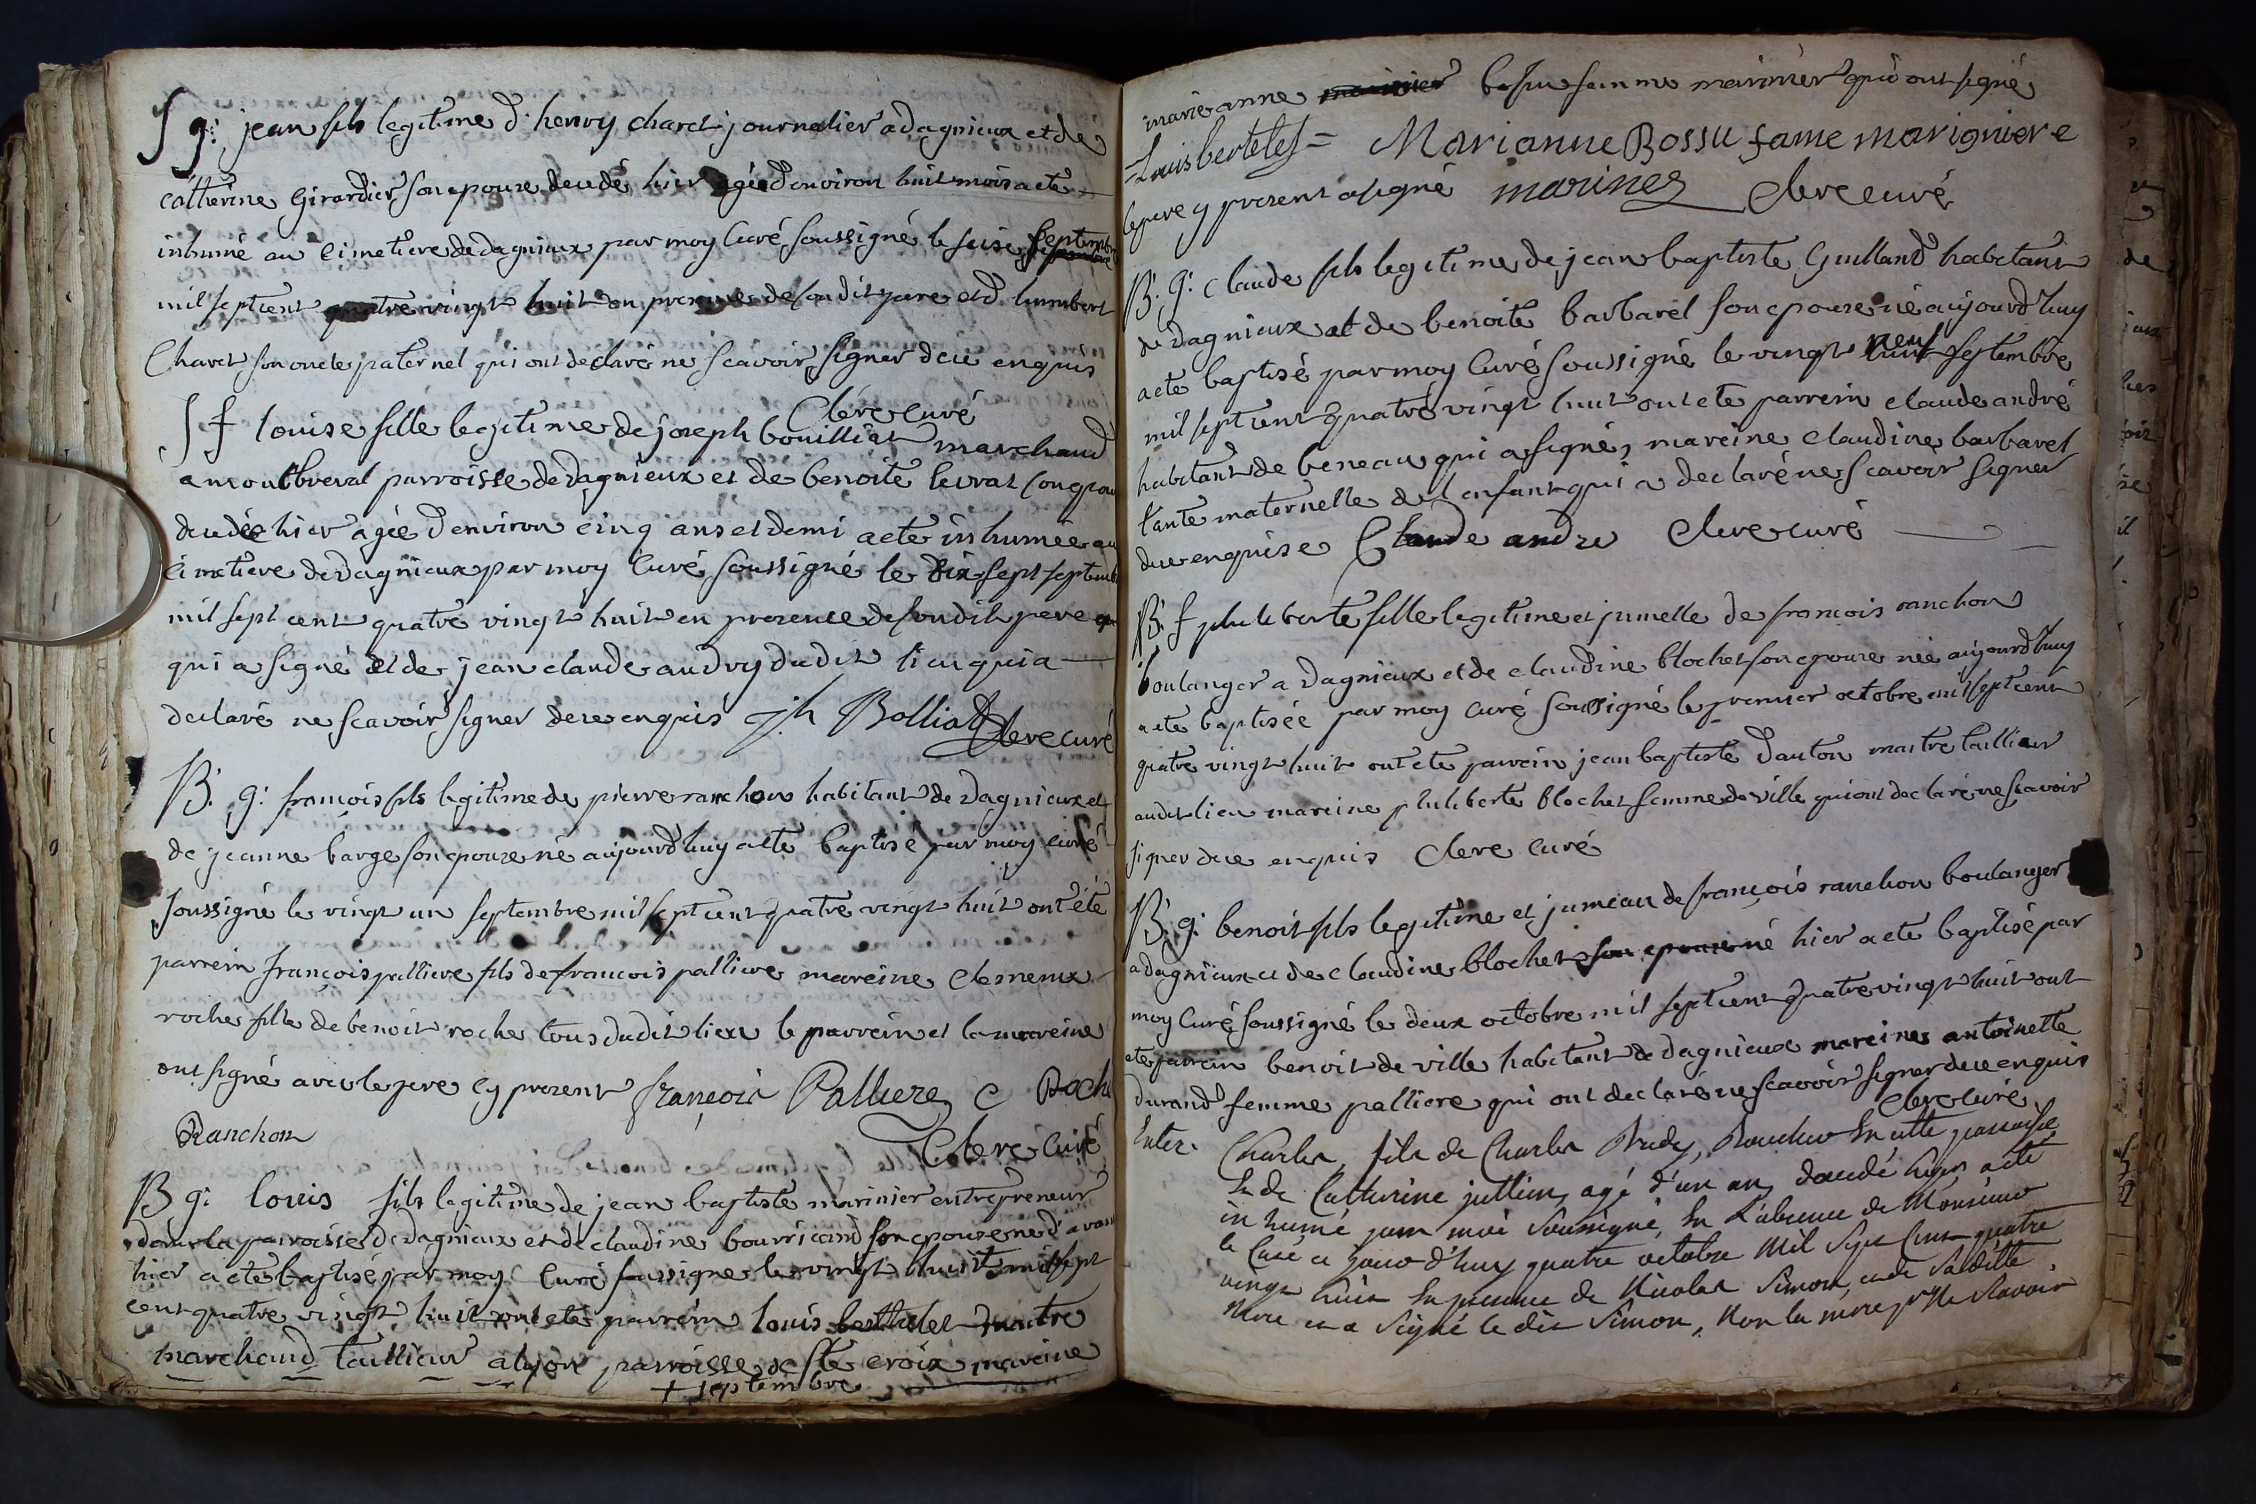 S g: jean fils legitime d'henry charet journalier a dagnieux et de
catherine Girardier son epouze decedé hier agé d'environ huit mois a ete
inhumé au cimetiere de dagnieux par moy Curé soussigné le seise septembre
mil sept cent quatre vingt huit en presence de son dit pere et d humbert
Charet son oncle paternel qui ont declaré ne scavoir signer de ce enquis
Clere curé
S f louise fille legitime de joseph bouilliat marchand
a montbreval parroisse de dagnieux et de benoite levrat son epou
decedée hier agée d'environ cinq ans et demi a ete inhumée au
cimetiere de dagnieux par moy Curé soussigné le dix sept septemb
mil sept cent quatre vingt huit en presence de son dit pere
qui a signé et de jean claude audry dudit lieu qui a
declaré ne scavoir signer de ce enquis jh Bolliat Clere curé
B. g: françois fils legitime de pierre ranchon habitant de dagnieux et
de jeanne barge son epouze né aujourd'huy a ete baptisé par moy curé
soussigné le vingt un septembre mil sept cent quatre vingt huit ont été
parrein françois palliere fils de francois palliere mareine Clemence
roche fille de benoit roche tous dudit lieu le parrein et la mareine
ont signé avec le pere cy present françois Palliere C Roche
Ranchon Clere curé
B g: louis fils legitime de jean baptiste marinier entrepreneur
dans la parroisse de dagnieux et de claudine bourricand son epouze né d'avant
hier a ete baptisé par moy Curé soussigné le vingt huit + mil sept
cent quatre vingt huit ont eté parrein louis berthelet maitre
marchand taillieur a lyon parroisse de ste croix mareine
+ septembre
marie anne bossu femme marinier qui ont signé
= Louis bertelet = Marianne Bossu fame marigniere
le pere cy present a signé marinez Clere curé
B. g: claude fils legitime de jean baptiste Guilland habitant
de dagnieux et de benoite barbaret son epouze né aujourd'huy
a ete baptisé par moy Curé soussigné le vingt neuf septembre
mil sept cent quatre vingt huit ont ete parrein claude andré
habitant de beneau qui a signé, mareine claudine barbaret
tante maternelle de l enfant qui a declaré ne scavoir signer
de ce enquise Claude andre Clere curé
B. f philiberte fille legitime et jumelle de francois ranchon
boulanger a dagnieux et de claudine blochet son epouze née aujourd'huy
a ete baptisée par moy curé soussigné le premier octobre mil sept cent
quatre vingt huit ont ete parrein jean baptiste dauton maitre taillieur
audit lieu mareine philiberte blochet femme de ville qui ont declaré ne scavoir
signer de ce enquis Clere curé
B. g: benoit fils legitime et jumeau de françois ranchon boulanger
a dagnieux et de claudine blochet son epouze né hier a ete baptisé par
moy Curé soussigné le deux octobre mil sept cent quatre vingt huit ont
ete parrein benoit de ville habitant de dagnieux mareine antoinette
durand femme palliere qui ont declaré ne scavoir signer de ce enquis
Clere curé
Enter. Charles, fils de Charles En cette paroisse
Et de Catherine jullien, agé d'un an, decedé hier a eté
inhumé par moi Soussigné, En L'absence de Monsieur
le Curé ce jourd'huy quatre octobre Mil Sept Cent quatre
vingt huit En presence de Nicolas Simon, et de Saditte
Mere et a Signé le dit Simon, Non la mere pr Ne Scavoir